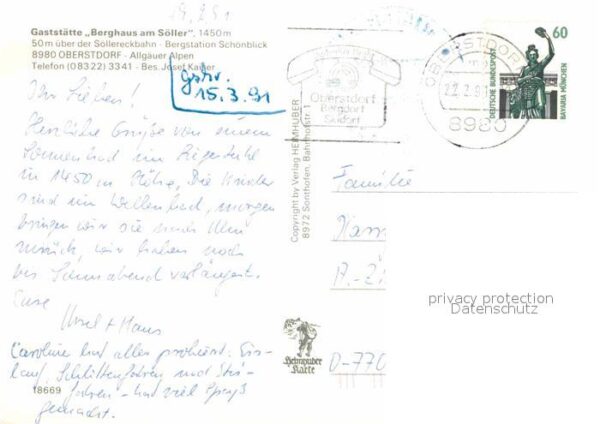 Gaststätte „Berghaus am Söller", 1450 m
50 m über der Söllereckbahn · Bergstation Schönblick
8980 OBERSTDORF · Allgäuer Alpen
Telefon (08322) 3341 · Bes. Josef Kaiser
15.3.91
Ihr Lieben!
Herzliche Grüße von einem
Sonnenbad im Liegestuhl
in 1450 m Höhe. Die Kinder
sind im Wellenbad, morgen
bringen wir sie nach
zurück, wir haben noch
bis Sonnabend verlängert.
Eure
Ursel + Hans
Caroline hat alles probiert: Eis-
lauf, Schlittenfahren und Ski-
fahren - und viel Spaß
gemacht.
18669
Copyright by Verlag HEIMHUBER
8972 Sonthofen, Bahnhofstr.
Heimhuber
Karte
Oberstdorf
Bergdorf
Skidorf
OBERSTDORF
8980
60
DEUTSCHE BUNDESPOST
BAVARIA MÜNCHEN
Familie
D-770
privacy protection
Datenschutz